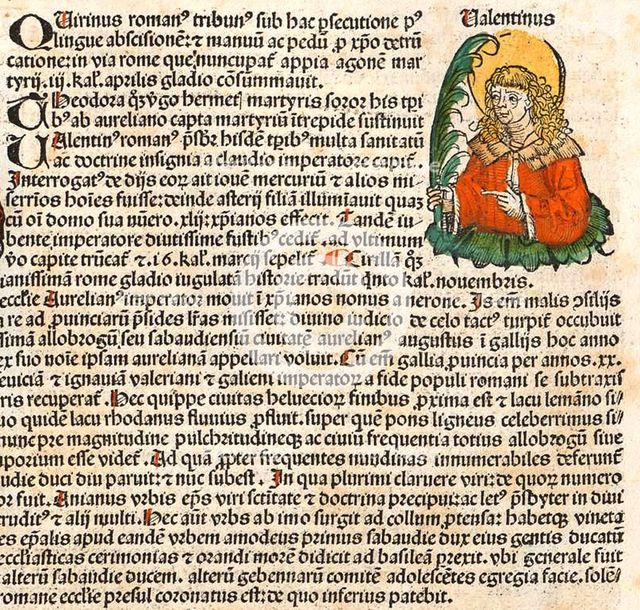 Valentinus
Quirinus romanꝰ tribunꝰ sub hac ꝑsecutione pꝰ
lingue abscisionē: ⁊ manuū ac pedū ꝓ xp̄o detrū
catione: in via rome que nuncupat̄ appia agonē mar
tyrij .iij. kal̄. aprilis gladio cōsummauit.
Theodora q̄ꝫ ꝟgo hermet martyris soror his tꝑi
bꝰ ab aureliano capta martyriū ītrepide sustinuit
Valentinꝰ romanꝰ p̄sb̄r hisdē tꝑibꝰ multa sanitatū
ac doctrine insignia a claudio imperatore capit̄.
Interrogatꝰ de dijs eoꝝ ait iouē mercuriū ⁊ alios mi
serrīos hoīes fuisse: deinde asterij filiā illumīauit quaꝫ
cū oī domo sua nūero .xlij. xp̄ianos effecit. Tandē iu
bente imperatore diutissime fustibꝰ cedit̄. ad vltimum
vo capite trūcat̄ ⁊ .16. kal̄. marcij sepelit̄. Cirillā q̄ꝫ
ianissimam rome gladio iugulatā historie tradūt q̄nto kal̄. nouembris.
eccl̄ie Aurelianꝰ imperator mouit ī xp̄ianos nonus a nerone. Is em̄ malis ꝯsilijs
a re ad ꝓuinciarū p̄sides lr̄as misisset: diuino iudicio de celo tactꝰ turpit̄ occubuit
simā allobrogū, seu sabaudiensiū ciuitatē aurelianꝰ augustus ī gallijs hoc anno
ex suo noīe ipsam aurelianā appellari voluit. Cū em̄ gallia ꝓuincia per annos .xx.
leuiciā ⁊ ignauiā valeriani ⁊ galieni imperatoꝝ a fide populi romani se subtraxis
ris recuperat̄. Hec quippe ciuitas helueciorꝝ finibus ꝓxima est ⁊ lacu lemāno si
uo quidē lacu rhodanus fluuius ꝓfluit. super quē pons ligneus celeberrimus si
nunc pre magnitudine pulchritudineqꝫ ac ciuiū frequentia totius allobrogū siue
mporium esse videt̄. Ad quā ꝓpter frequentes nundinas innumerabiles deferunt̄
audie duci diu paruit: ⁊ nūc subest. In qua plurimi claruere viri: de quoꝝ numero
or fuit. Anianus vrbis ep̄s viri sc̄titate ⁊ doctrina precipui: ac letꝰ p̄sbyter in diui
ruditꝰ ⁊ alij multi. Hec aūt vrbs ab imo surgit ad collum ꝓtensa: habetqꝫ vineta
es ep̄alis apud eandē vrbem amodeus primus sabaudie dux eius gentis ducatū
eccl̄iasticas cerimonias ⁊ orandi morē didicit ad basileā ꝑrexit. vbi generale fuit
alterū sabaudie ducem. alterū gebennarū comitē adolescētes egregia facie. solē
romane eccl̄ie presul coronatus est: de quo inferius patebit.